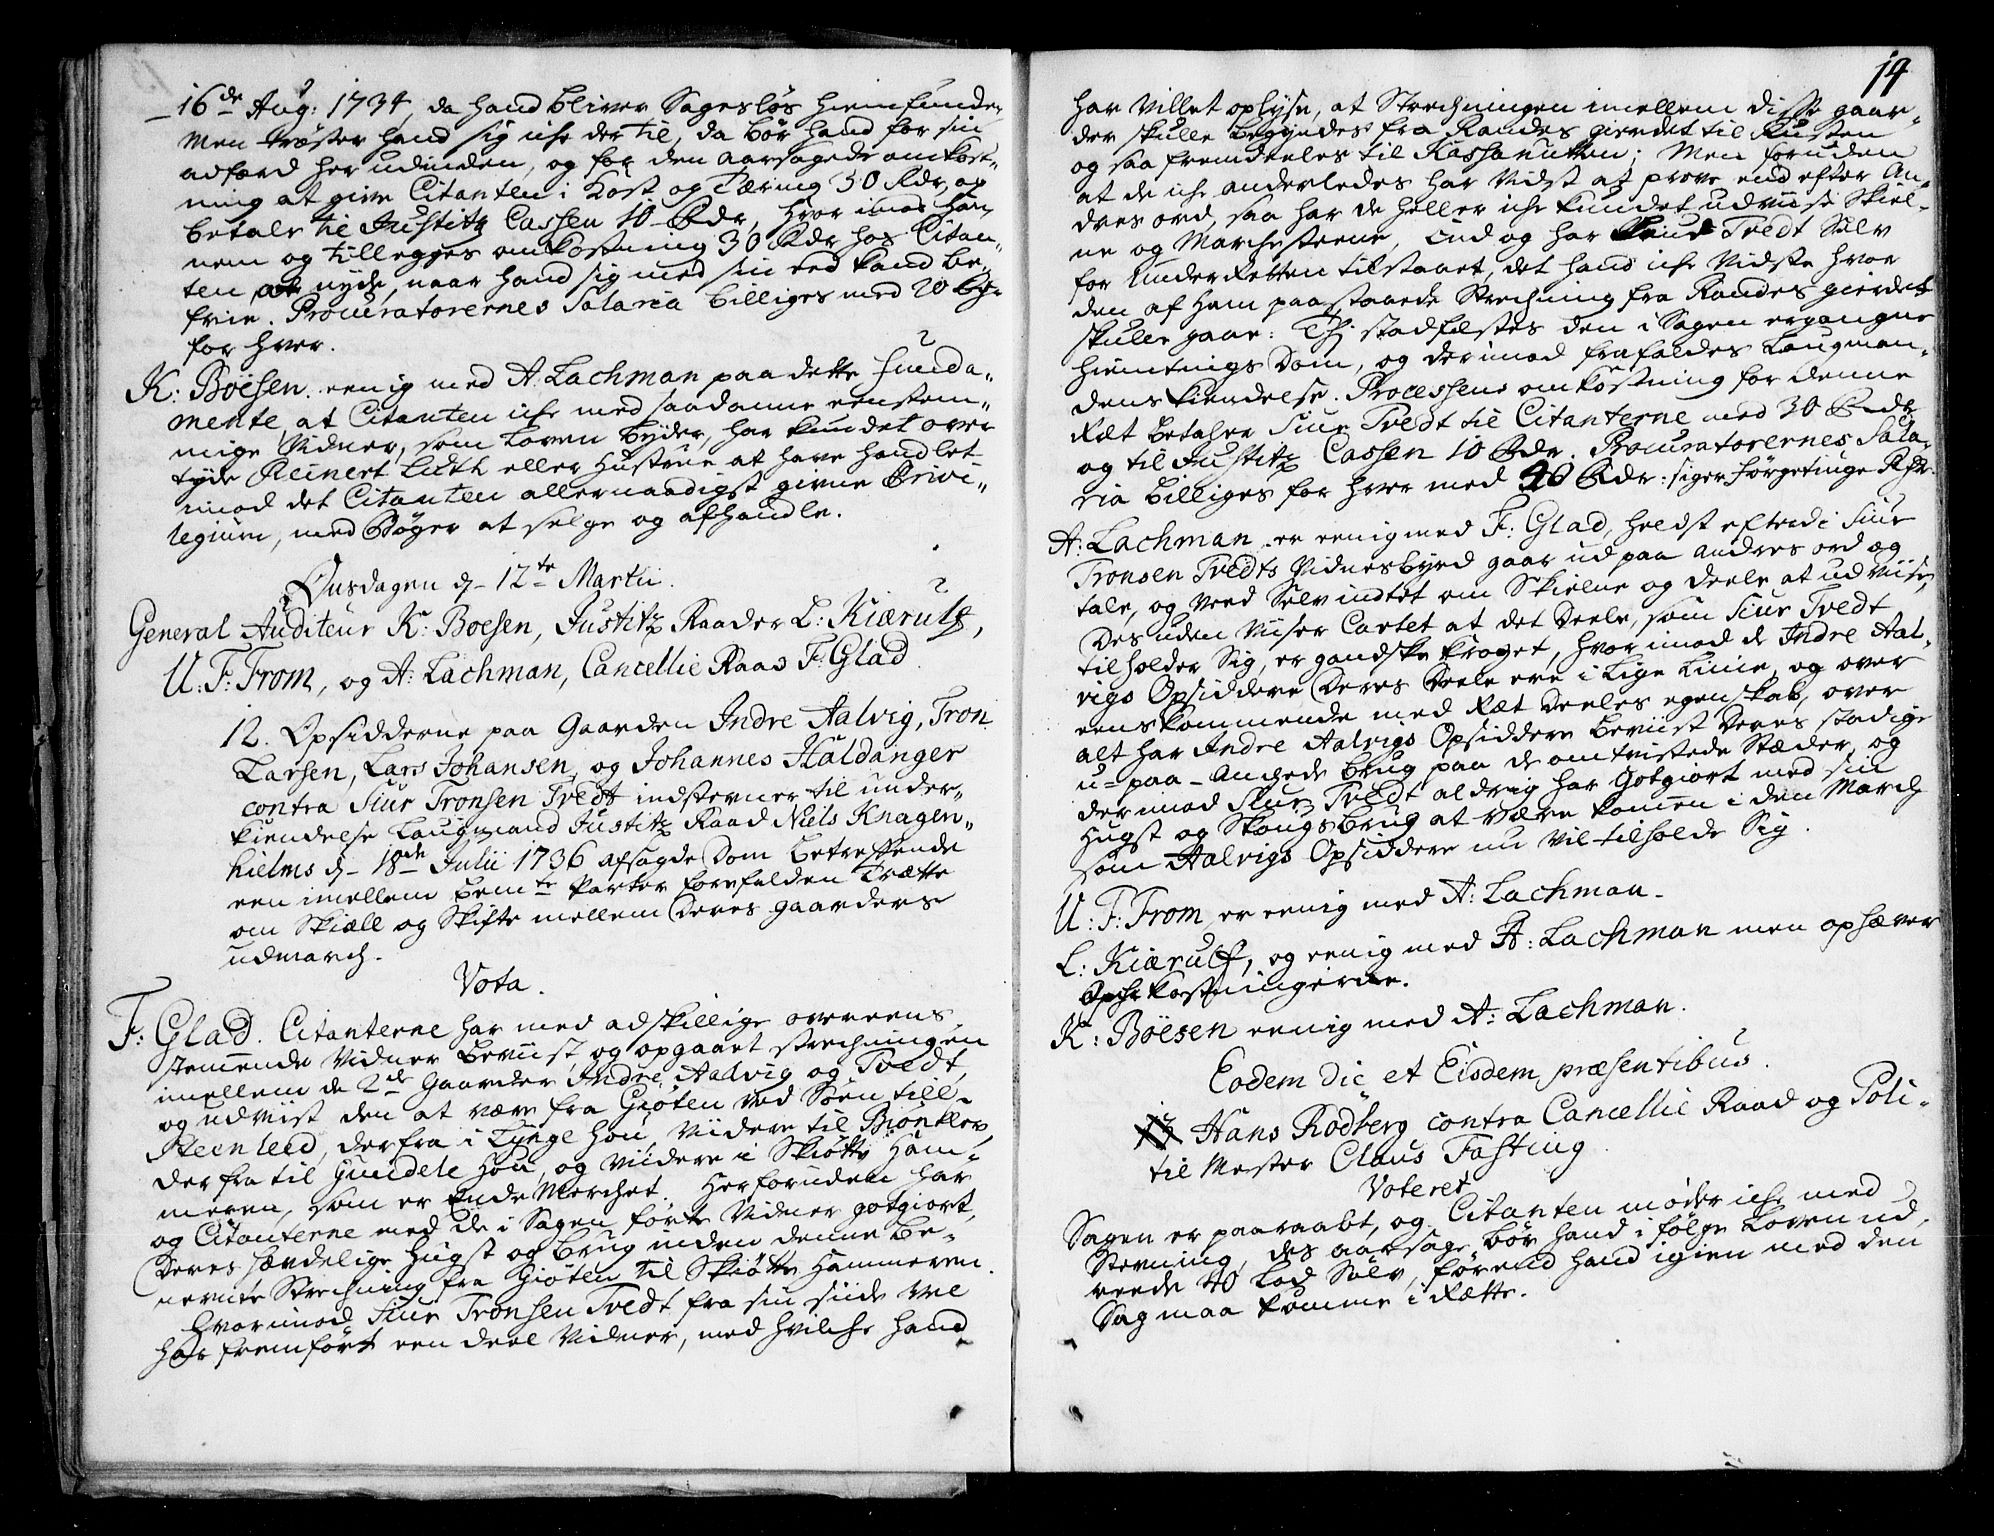 16de Aug: 1734, da hand bliver Sagesløs hiemfunden,
Men trøster hand sig iche der til, da bør hand for sin
adfærd her udinden, og for den aarsagede omkost-
ning at give Citanten i Kost og Tæring 30 Rdr, og
betale til Justitz Cassen 10 Rdr, hvor imod han-
nem og tillegges omkostning 30 Rdr hos Citan-
ten at nyde, naar hand sig med sin eed kand be-
frie. Procuratorernes Salaria billiges med 20 Rdr
for hver.
K: Boësen. eenig med A: Lachman paa dette funda-
mente, at Citanten iche med saadanne eenstem-
mige Vidner, som Loven byder, har kundet over
tyde Reinert Luth eller Hustrue at have handlet
imod det Citanten allernaadigst givne Privi-
legium, med Bøger at selge og afhandle.
Onsdagen d- 12te Martii.
General Auditeur K: Boesen, Justitz Raader L: Kiærulf,
U. F: From, og A: Lachman, Cancellie Raad F: Glad.
12. Opsidderne paa Gaarden Indre Aalvig, Tron
Larsen, Lars Johansen, og Johannes Haldanger
contra Siur Tronsen Tvedt indstevner til under-
kiendelse Laugmand Justitz Raad Niels Knagen-
hielms d- 18de Julii 1736 afsagde Dom betreffende
een imellem bemte Parter forefalden Trætte
om Skiæll og Skifte mellem Deres gaarders
udmarch.
Vota.
F: Glad. Citanterne har med adskillige overeens-
stemende Vidner beviist, og opgaaet strechningen
imellem de 2de Gaarder Indre Aalvig og Tvedt,
og udviist den at være fra Giøten ved Søen till
Steenleed, derfra i Lynge hou, Viidere til Bionklev,
derfra til Gundele hou, og Viidere i Skiøtte Ham-
meren, som er Ende Merchet. Herforuden har
og Citanterne med de i Sagen førte Vidner gotgiort,
Deres hævdelige Hugst og brug inden denne be-
nevnte Strechning fra Giøten til Skiøtte Hammeren.
Hvorimod Siur Tronsen Tvedt fra sin siide vel
har fremført een deel Vidner, med hvilche hand
14
har villet oplyse, at Strechningen imellem disse gaar-
der skulle begyndes fra Randes gierdet til Rusten
og saa fremdeeles til Kassanutten; Men foruden
at de iche anderledes har vidst at prove end efter An-
dres ord, saa har de heller iche kundet udviise Skiel-
ne og Marchesteene, End og har Knud Tvedt Selv
for Underretten tilstaaet, det hand iche Vidste hvor
den af ham paastaaede Strechning fra Randes gierdet
skulle gaae: Thi stadfæstes den i Sagen ergangne
Hiemtings Dom, og derimod frafaldes Laugman-
dens Kiendelse. Processens omkostning for denne
Ræt betaler Siur Tvedt til Citanterne med 30 Rdr
og til Justitz Cassen 10 Rdr. Procuratorernes Sala-
ria billiges for hver med 40 Rdr: siger førgetinge Rdr.
A: Lachman er eenig med F: Glad, heldst efterdi Siur
Tronsen Tvedts Vidnesbyrd gaar ud paa andres ord og
tale, og veed Selv indtet om Skielne og deele at udviise,
Desuden Viiser Cartet at det Deele, som Siur Tvedt
tilholder Sig, er gandske kroget, hvorimod de Indre Aal-
vigs Opsiddere Deres Deele ere i Lige Linie, og over
eenskommende med Ræt Deeles egenskab, over
alt har Indre Aalvigs Opsiddere beviist Deres stadige
u-paa-anchede brug paa de omtvistede Stæder, og
derimod Siur Tvedt aldrig har Gotgiort med sin
Hugst og Skougs brug at være komen i den March
som Aalvigs Opsiddere nu vil tilholde Sig.
U: F: From er eenig med A: Lachman.
L: Kiærulff, og eenig med A: Lachman men ophæver
kostningerne.
K: Boësen eenig med A: Lachman.
Eodem Die et Eisdem præsentibus.
13 Hans Rodberg contra Cancellie Raad og Poli-
til Mester Claus Fasting.
Voteret
Sagen er paaraabt, og Citanten møder iche med
Stevning, des aarsage bør hand i følge Loven ud-
reede 40 Lod Sølv, førend hand igien med den
Sag maa komme i Rætte.